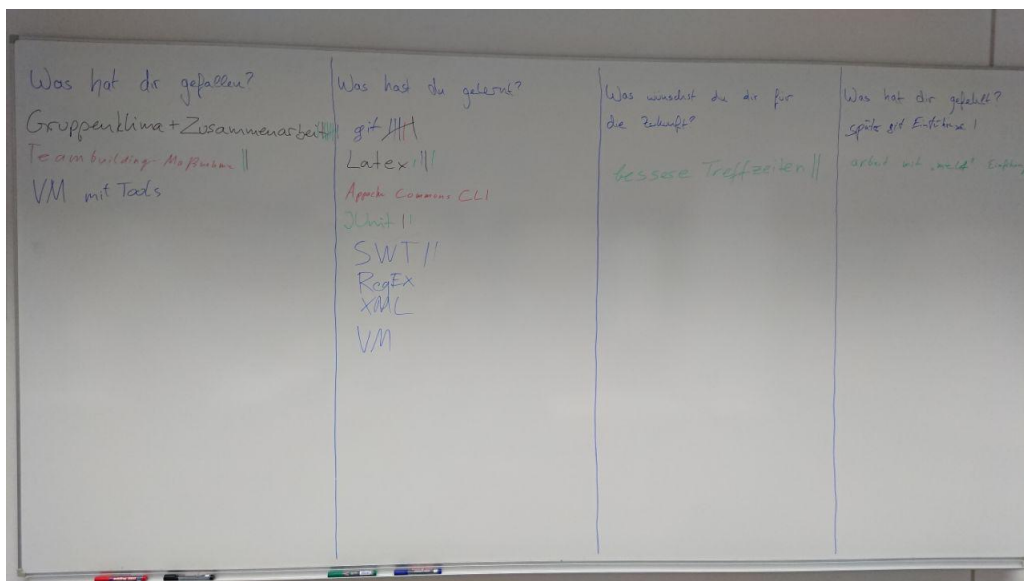 Was hat dir gefallen?
Gruppenklima + Zusammenarbeit
Teambuilding-Maßnahme ||
VM mit Tools
Was hast du gelernt?
git
Latex
Appache Commons CLI
JUnit ||
SWT ||
RegEx
XML
VM
Was wünschst du dir für
die Zukunft?
bessere Treffzeiten ||
Was hat dir gefehlt?
späte git Einführung |
arbeit mit Einführung